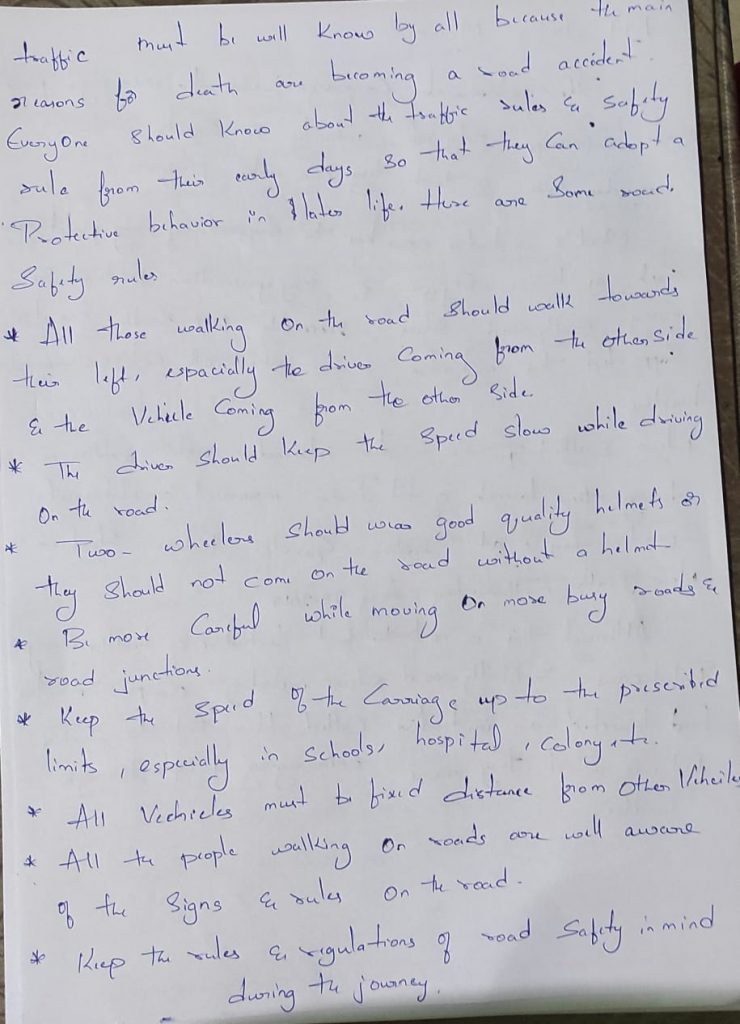 traffic must be well know by all because the main
reasons for death are becoming a road accident.
EveryOne should know about the traffic rules & safity
rule from their early days so that they can adopt a
Protective behavior in later life. Here are Some road.
Safety rules
* All those walking on the road should walk towards
their left, espacially the driver Coming from the other Side
& the Vehicle Coming from the other Side.
* The driver should Keep the Speed slow while driving
On the road.
* Two-wheelers should wear good quality helmets or
they should not come on the road without a helmet
* Be more Careful while moving on more busy roads &
road junctions.
* Keep the Speed of the Carriage up to the prescribid
limits, especially in schools, hospital, colony etc.
* All Vechicles must be fixed distance from other Viheiles
* All the people walking on roads are well aware
of the Signs & rules on the road.
* Keep the rules & regulations of road Safity in mind
during the journey.